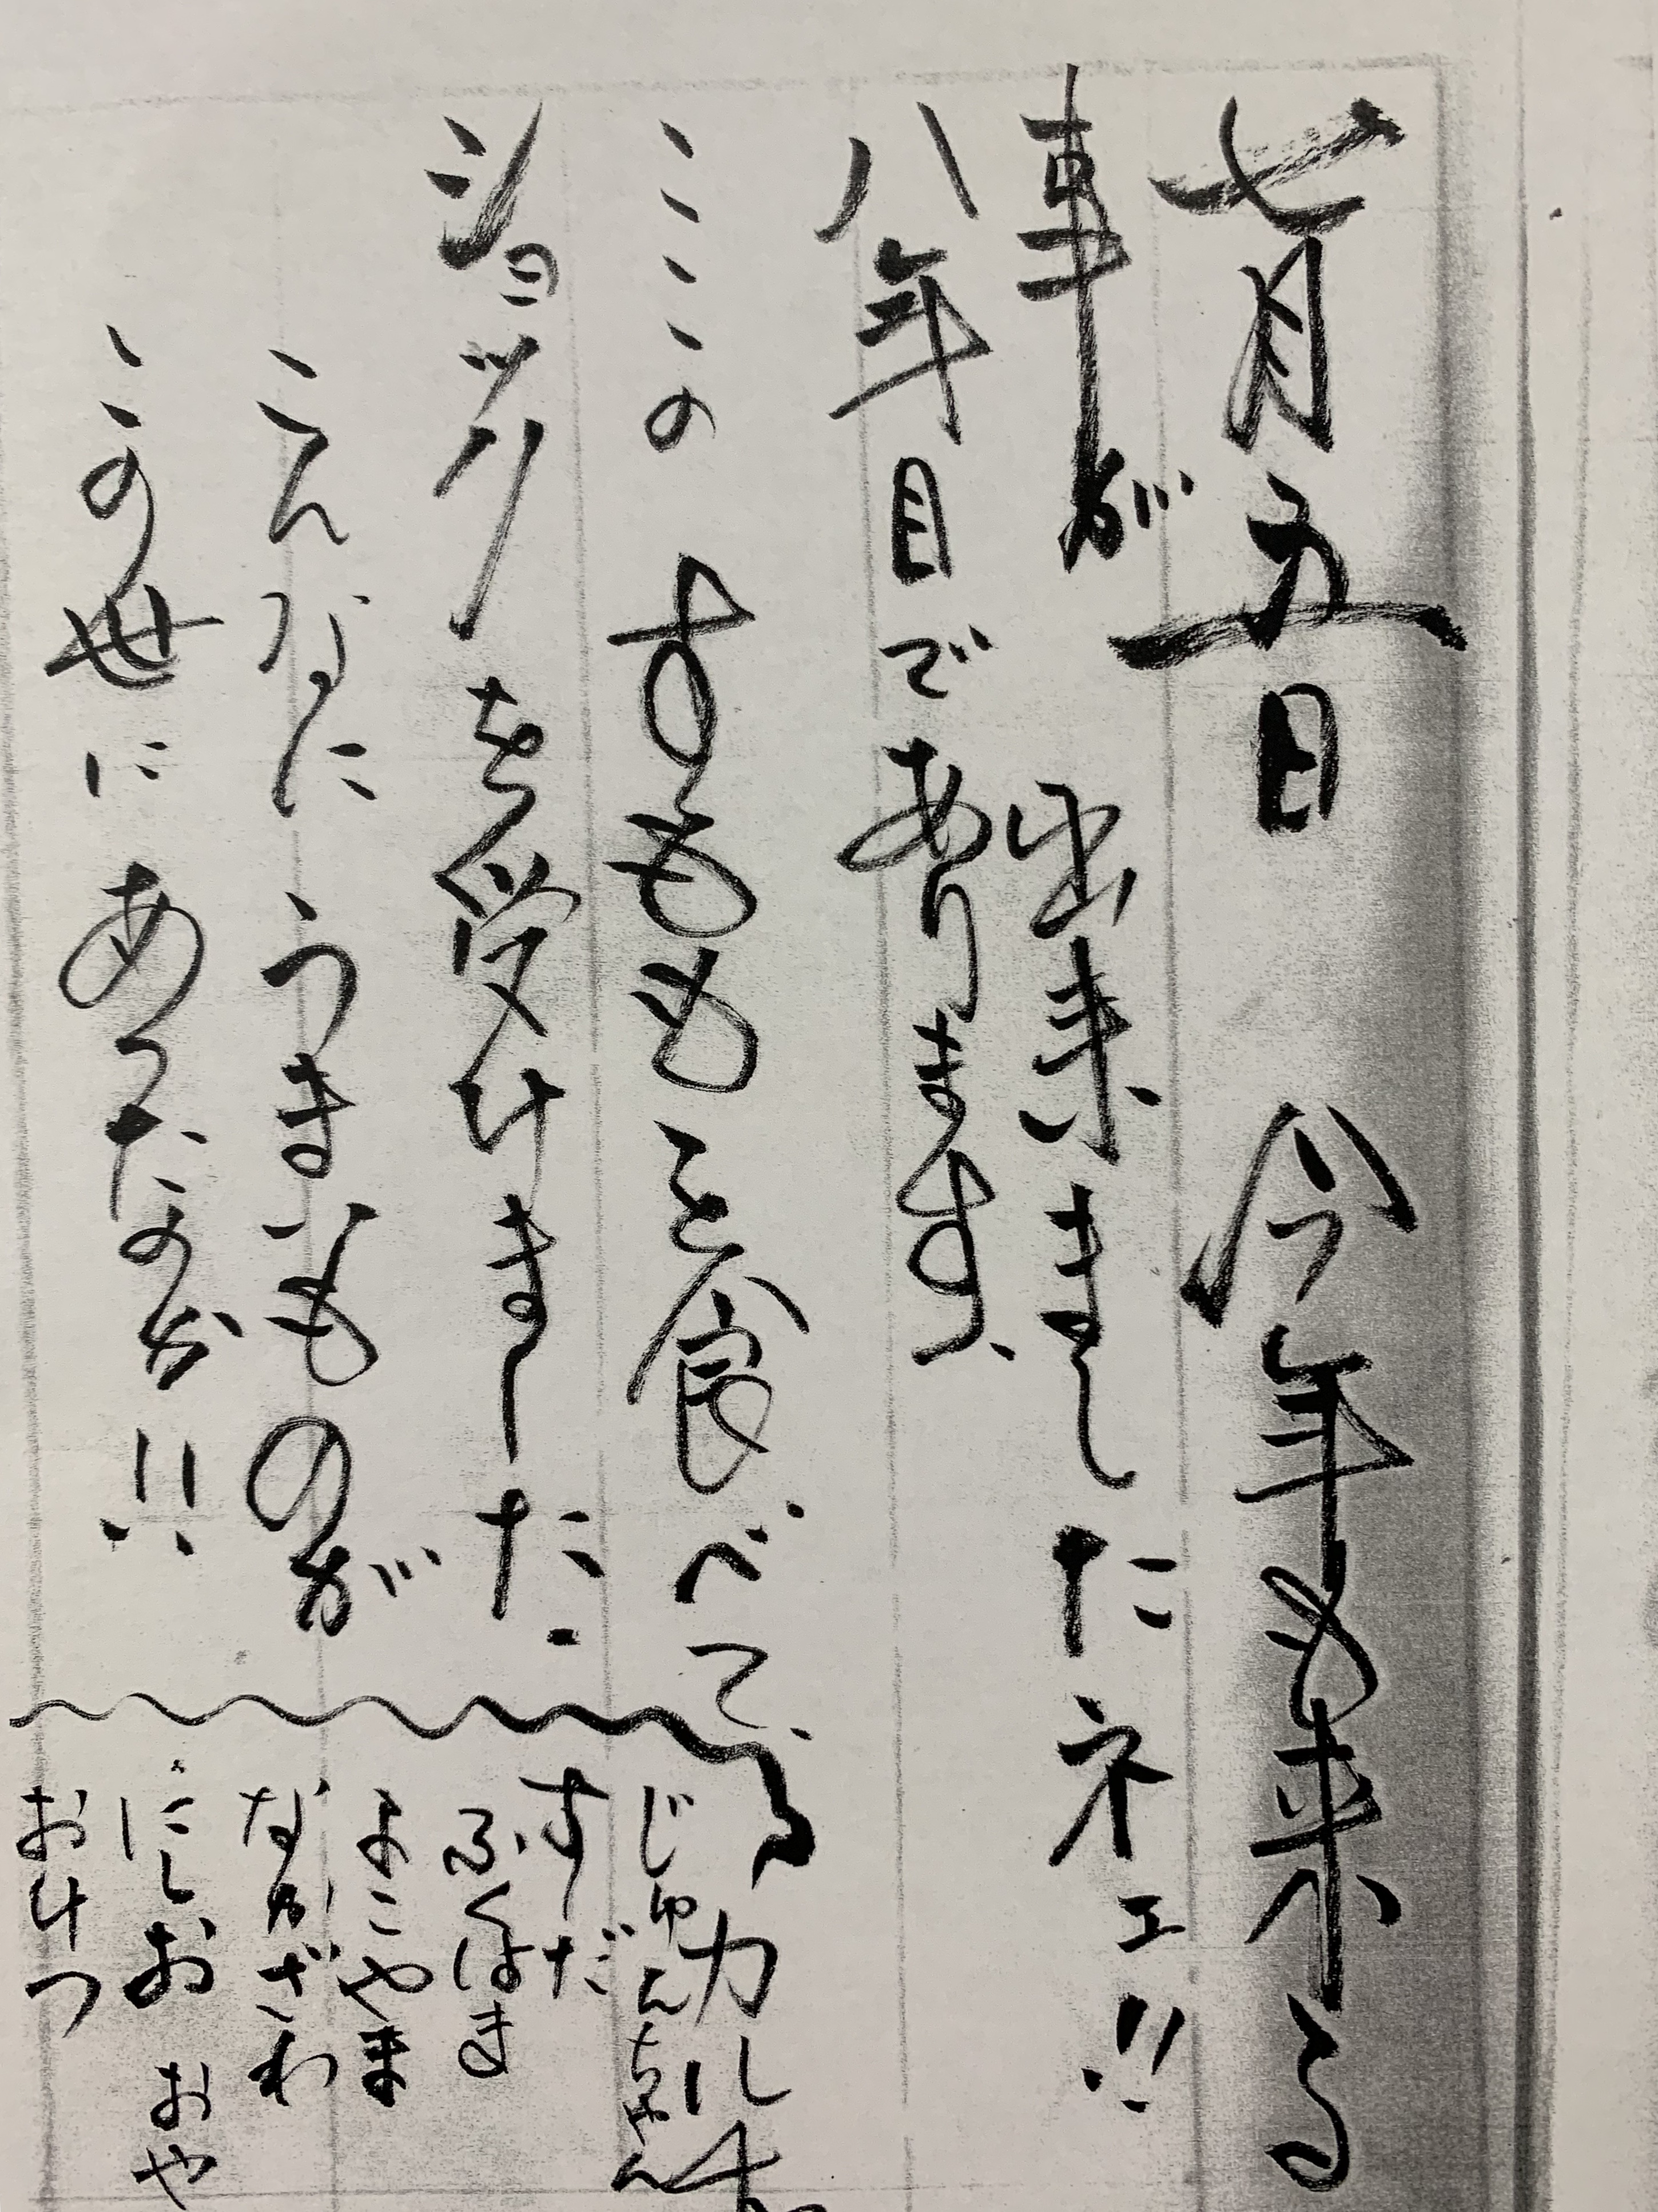 七月五日 今年も来る
事が 出来ましたネェ!!
八年目であります、
ここの すももを食べて、
ショックを受けました.
こんなに うまいものが
この世に あったのか!!
カル
じゅんちゃん
すだ
ふくはま
よこやま
ながざわ
にしお おや
おけつ